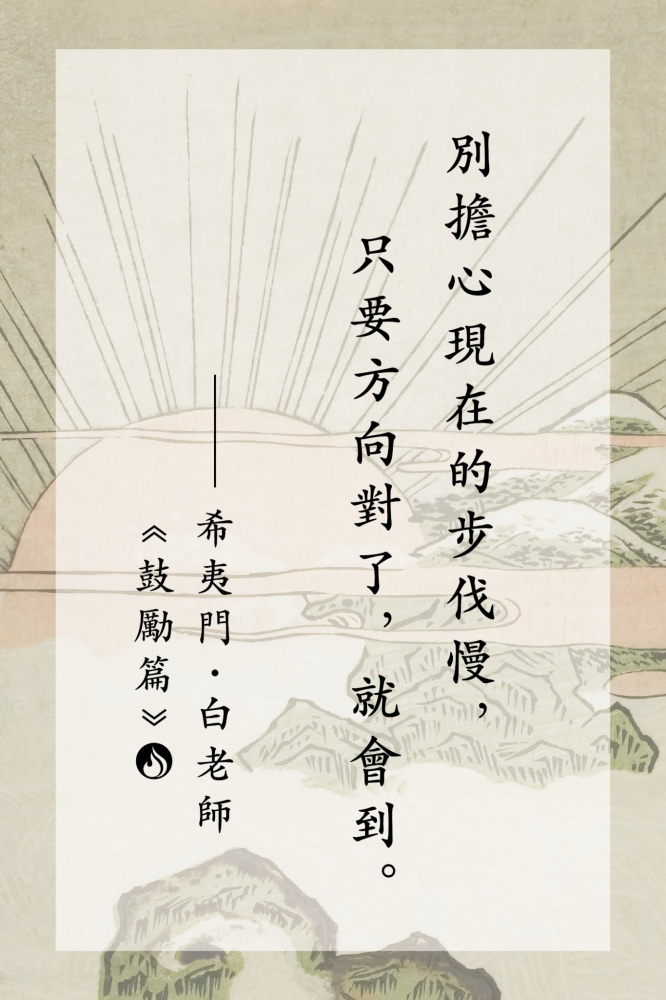 別擔心現在的步伐慢，
只要方向對了，就會到。
——希夷門・白老師
《鼓勵篇》